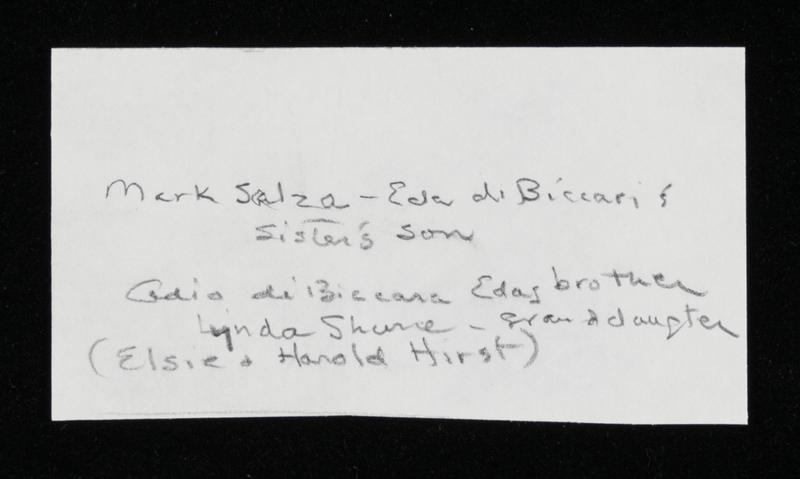 Mark Salza - Eda di Biccari's
Sister's Son
di Biccara Edas brother
Lynda - granddaugter
(Elsie & Harold Hirst)